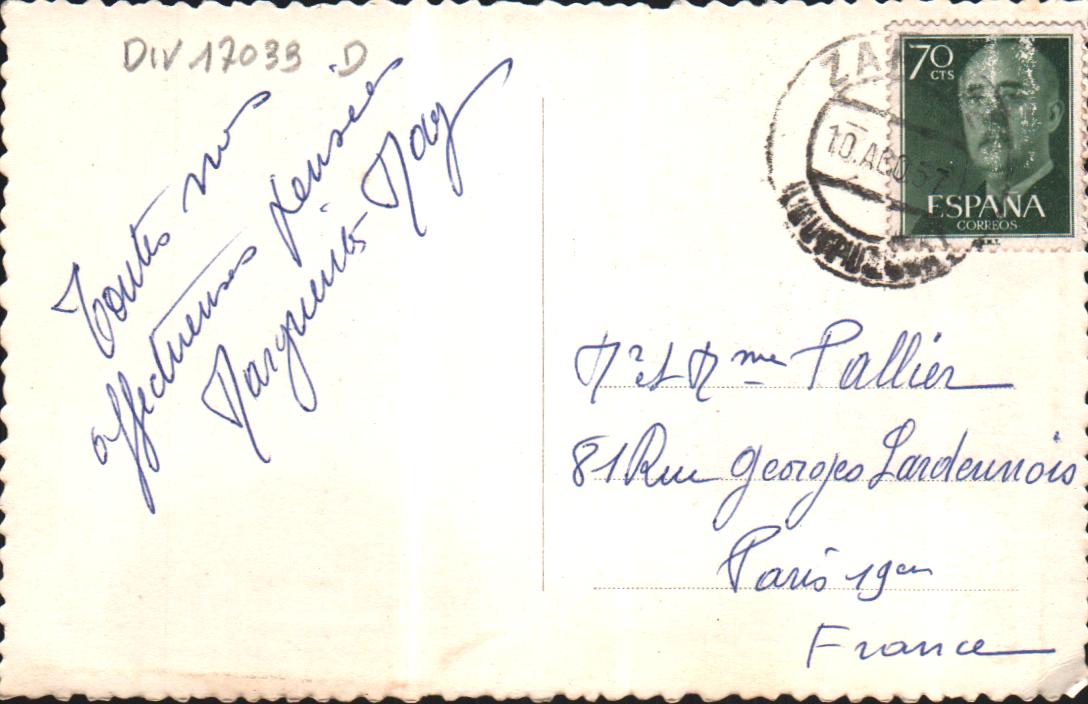 DIV 17033 D
Toutes nos
affectueuses pensées
Marguerite May
70
CTS
ESPAÑA
CORREOS
ZA
10.AGO.57
Mr et Mme Pallier
81 Rue Georges Lardennois
Paris 19em
France